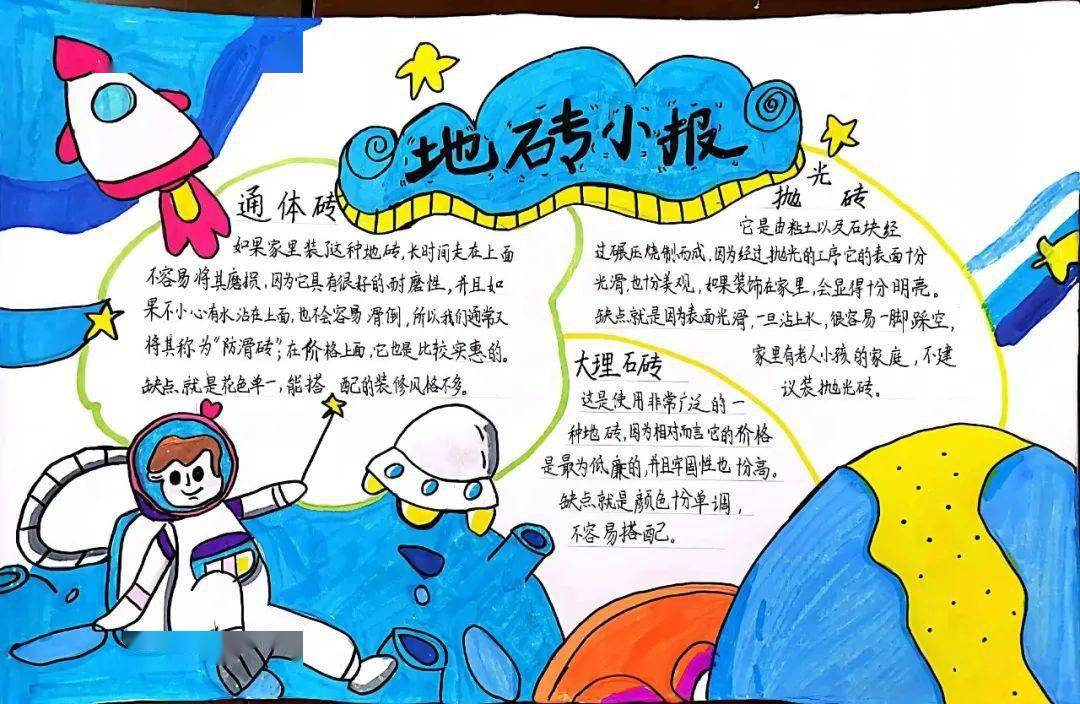 地砖小报
通体砖
如果家里装了这种地砖,长时间走在上面
不容易将其磨损,因为它具有很好的耐磨性,并且如
果不小心有水沾在上面,也不会容易滑倒,所以我们通常又
将其称为“防滑砖”;在价格上面,它也是比较实惠的。
缺点就是花色单一,能搭配的装修风格不多。
抛光砖
它是由粘土以及石块经
过碾压烧制而成,因为经过抛光的工序它的表面十分
光滑,也十分美观,如果装饰在家里,会显得十分明亮。
缺点就是因为表面光滑,一旦沾上水,很容易一脚踩空,
家里有老人小孩的家庭,不建
议装抛光砖。
大理石砖
这是使用非常广泛的一
种地砖,因为相对而言它的价格
是最为低廉的,并且牢固性也十分高。
缺点就是颜色十分单调,
不容易搭配。